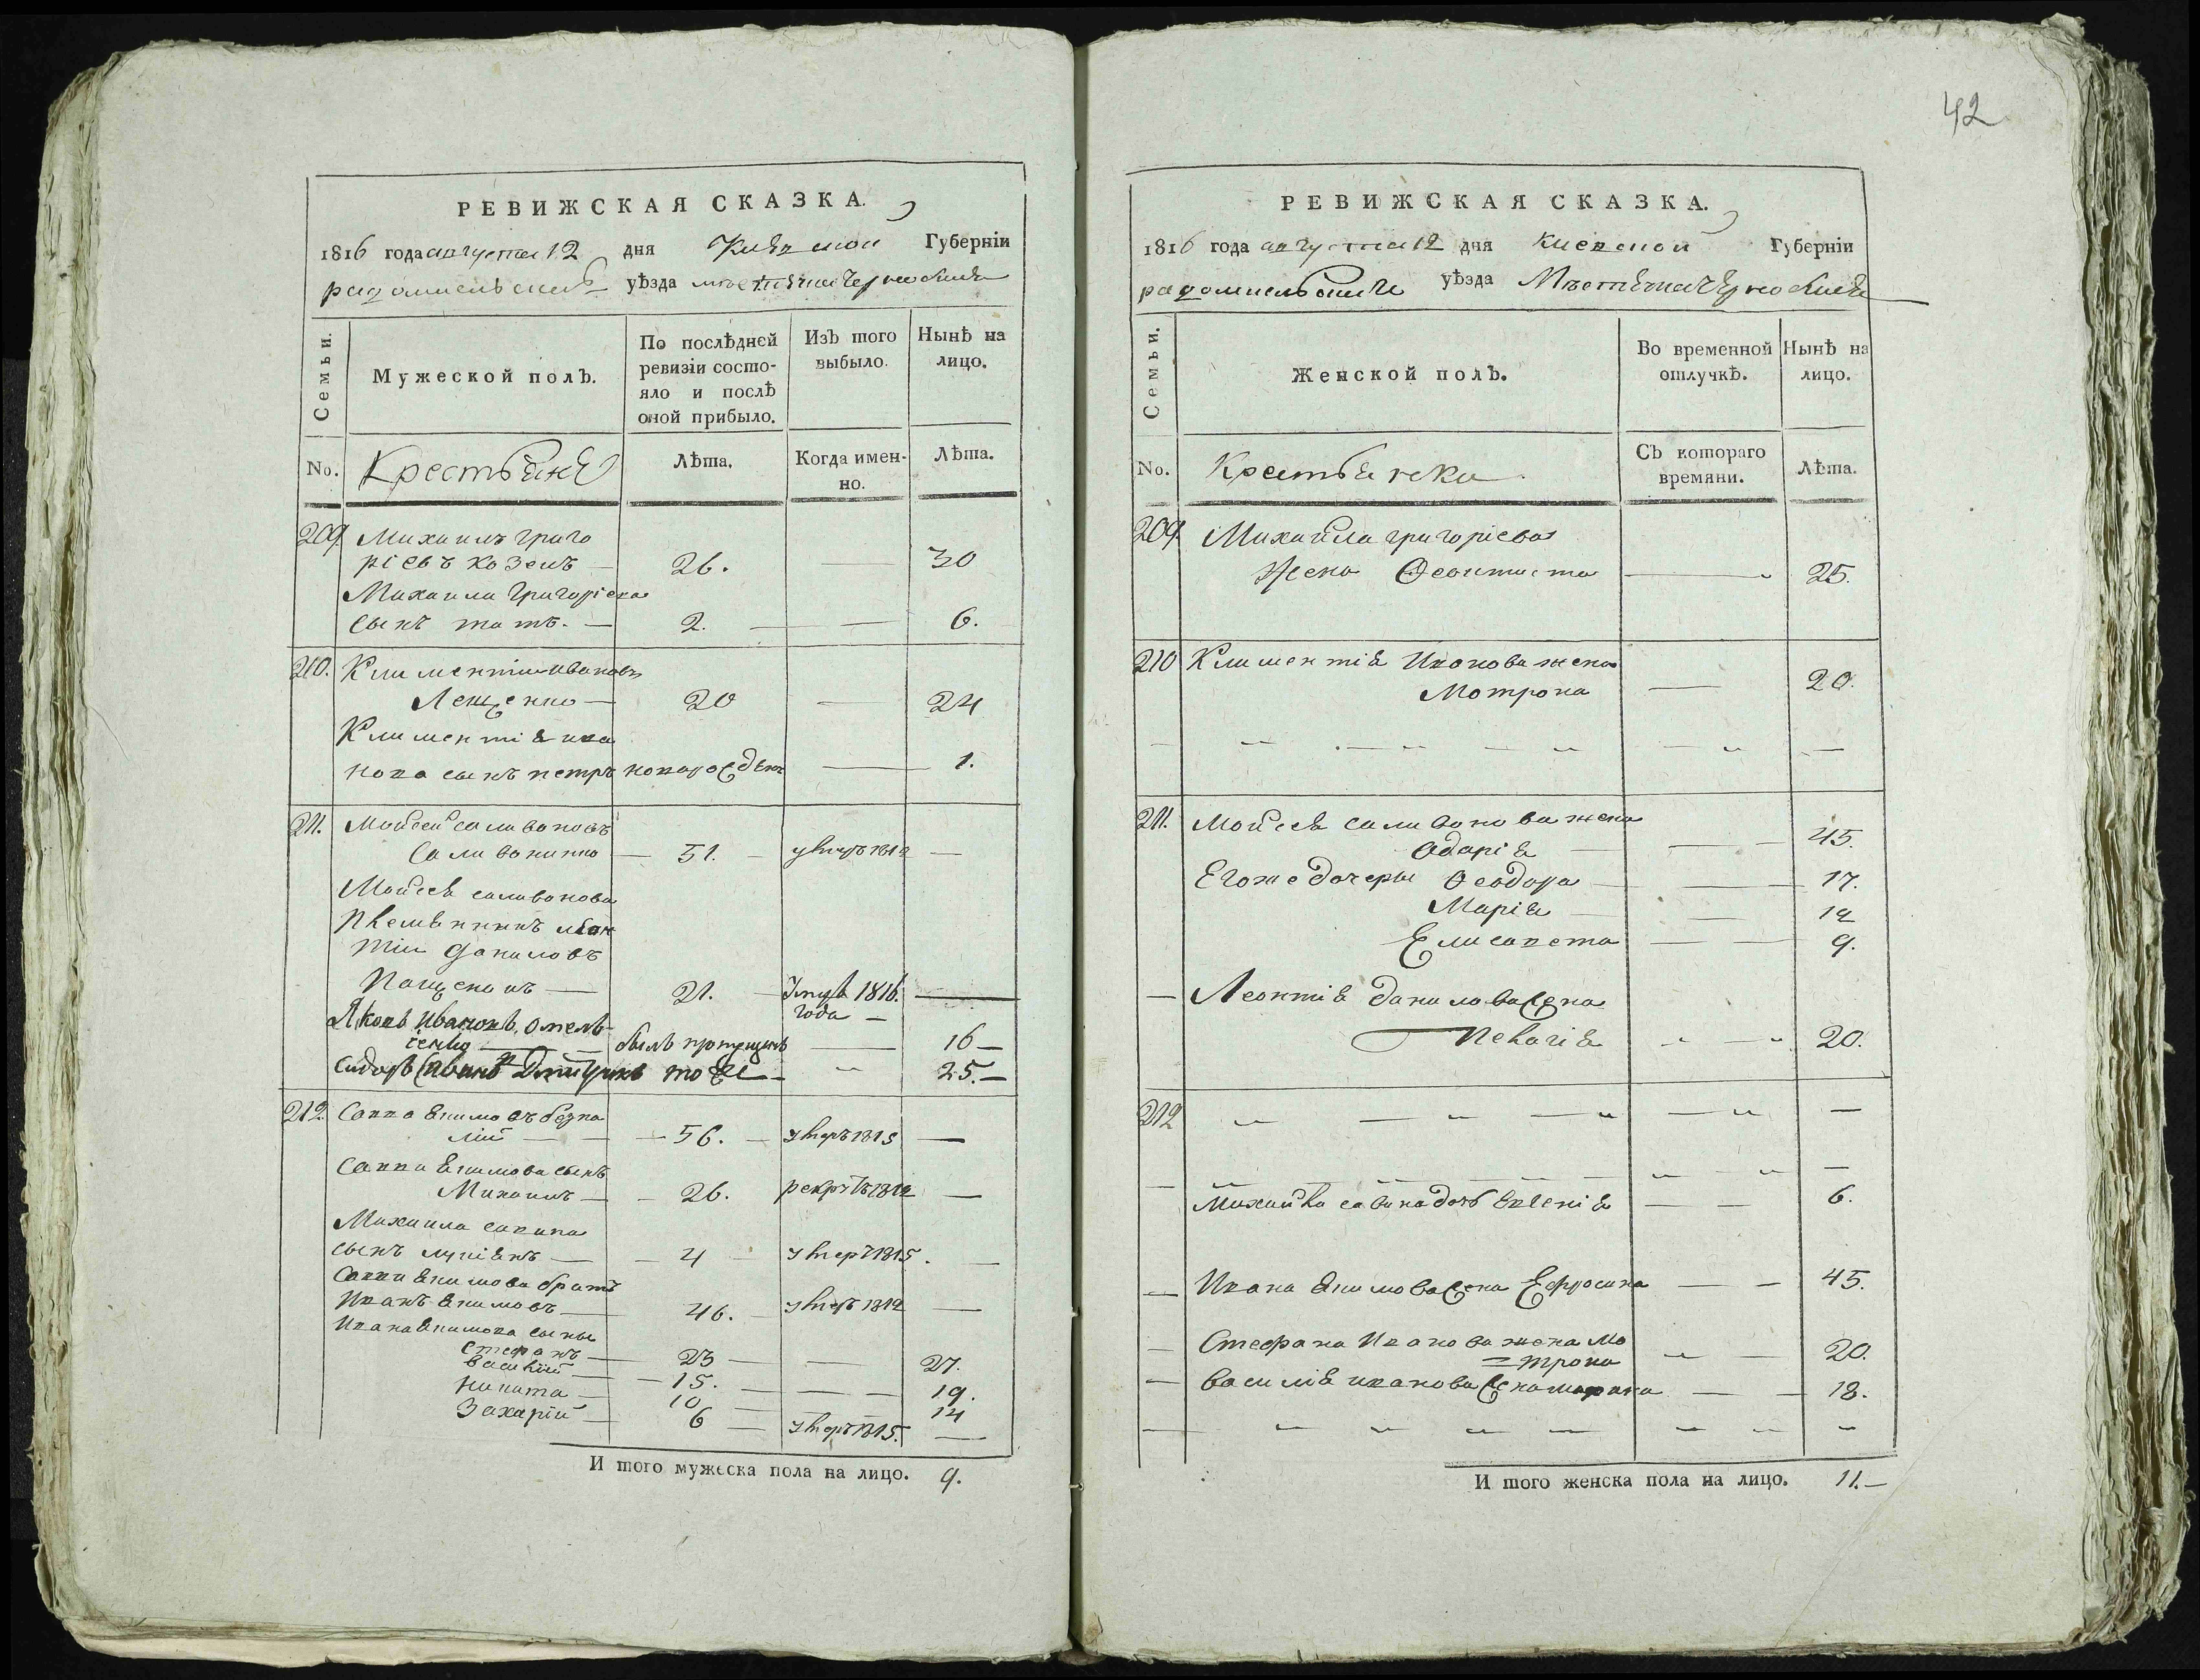 42
РЕВИЖСКАЯ СКАЗКА.
1816 года августа 12 дня Киевской Губерніи
радомысльскаго уѣзда мѣстечка Чернобиля
Семьи.
Мужеской полъ.
По послѣдней ревизіи состо-
яло и послѣ
оной прибыло.
Изъ того
выбыло.
Нынѣ на
лицо.
No.
Крестьяне
Лѣта.
Когда имен-
но.
Лѣта.
209. Михаилъ Григо
ріевъ Козелъ — 26. — 30
Михаила Григоріева
сынъ — 2. — 6.
210. Климентій Ивановъ
Лещенко — 20 — 24
Климентія Ива
нова сынъ Петръ новорожденъ — 1.
211. Мойсей Саливоновъ
51. — умръ 1812 —
Мойсея Саливонова
племянникъ Леон
тій Даниловъ
21. — 1816.
года —
Яковъ Ивановъ Омель-
ченко — былъ пропущенъ — 16 —
Сидоръ тоже — 25. —
212. Савва Якимовъ
— 56. — умеръ 1815 —
Саввы Якимова сынъ
Михаилъ — 26. рекрутъ 1812 —
Михаила Савина
сынъ Лукіянъ — 4 — умеръ 1815. —
Саввы Якимова братъ
Иванъ Якимовъ — 46. — умеръ 1812 —
Ивана Якимова сыны
Стефанъ — 23 — 27.
Василій — 15. — 19.
Никита — 10 — 14
Захарій — 6 — умеръ 1815. —
И того мужеска пола на лицо. 9.
РЕВИЖСКАЯ СКАЗКА.
1816 года августа 12 дня Киевской Губерніи
радомысльскаго уѣзда Мѣстечка Чернобиля
Семьи.
Женской полъ.
Во временной
отлучкѣ.
Нынѣ на
лицо.
No.
Крестьянска
Съ котораго
времяни.
Лѣта.
209 Михайла Григоріева
жена Феоктиста — 25.
210 Климентія Иванова жена
Мотрона — 20.
211. Мойсея Саливонова жена
Одарія — 45.
Егоже дочеры Феодора — 17.
Марія — 12
Елисавета — 9.
— Леонтія Данилова жена
Пелагія — 20.
212
Михайла Савина дочь Евгенія — 6.
— Ивана Якимова жена Ефросина — 45.
— Стефана Иванова жена Мо
=трона — 20.
— Василія Иванова жена Марина — 18.
И того женска пола на лицо. 11. —